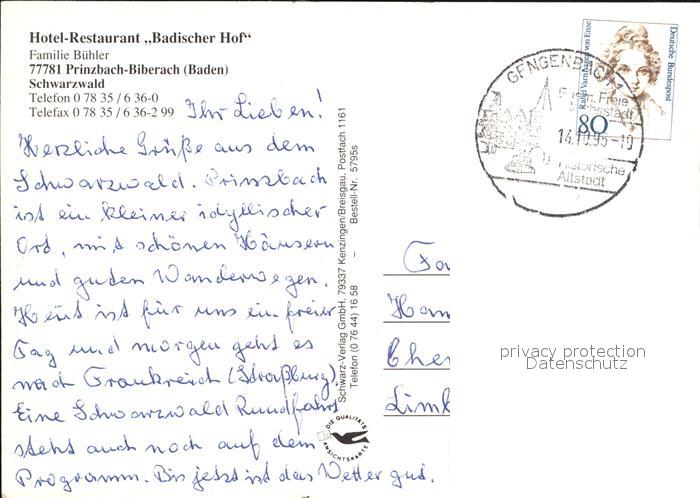 Hotel-Restaurant „Badischer Hof“
Familie Bühler
77781 Prinzbach-Biberach (Baden)
Schwarzwald
Telefon 0 78 35 / 6 36-0
Telefax 0 78 35 / 6 36-2 99
Ihr Lieben!
Herzliche Grüße aus dem
Schwarzwald. Prinzbach
ist ein kleiner idyllischer
Ort, mit schönen Häusern
und guten Wanderwegen.
Heut ist für uns ein freier
Tag und morgen geht es
nach Frankreich (Straßburg).
Eine Schwarzwald Rundfahrt
steht auch noch auf dem
Programm. Bis jetzt ist das Wetter gut.
Schwarz-Verlag GmbH, 79337 Kenzingen/Breisgau, Postfach 1161
Telefon (0 76 44) 16 58 – Bestell-Nr. 5795s
DIE QUALITÄTS
ANSICHTSKARTE
GENGENBACH 1
Freie
Reichsstadt
14.10.95-10
Historische
Altstadt
Rahel Varnhagen von Ense
80
Deutsche Bundespost
Fa
Han
Che
Limb
privacy protection
Datenschutz